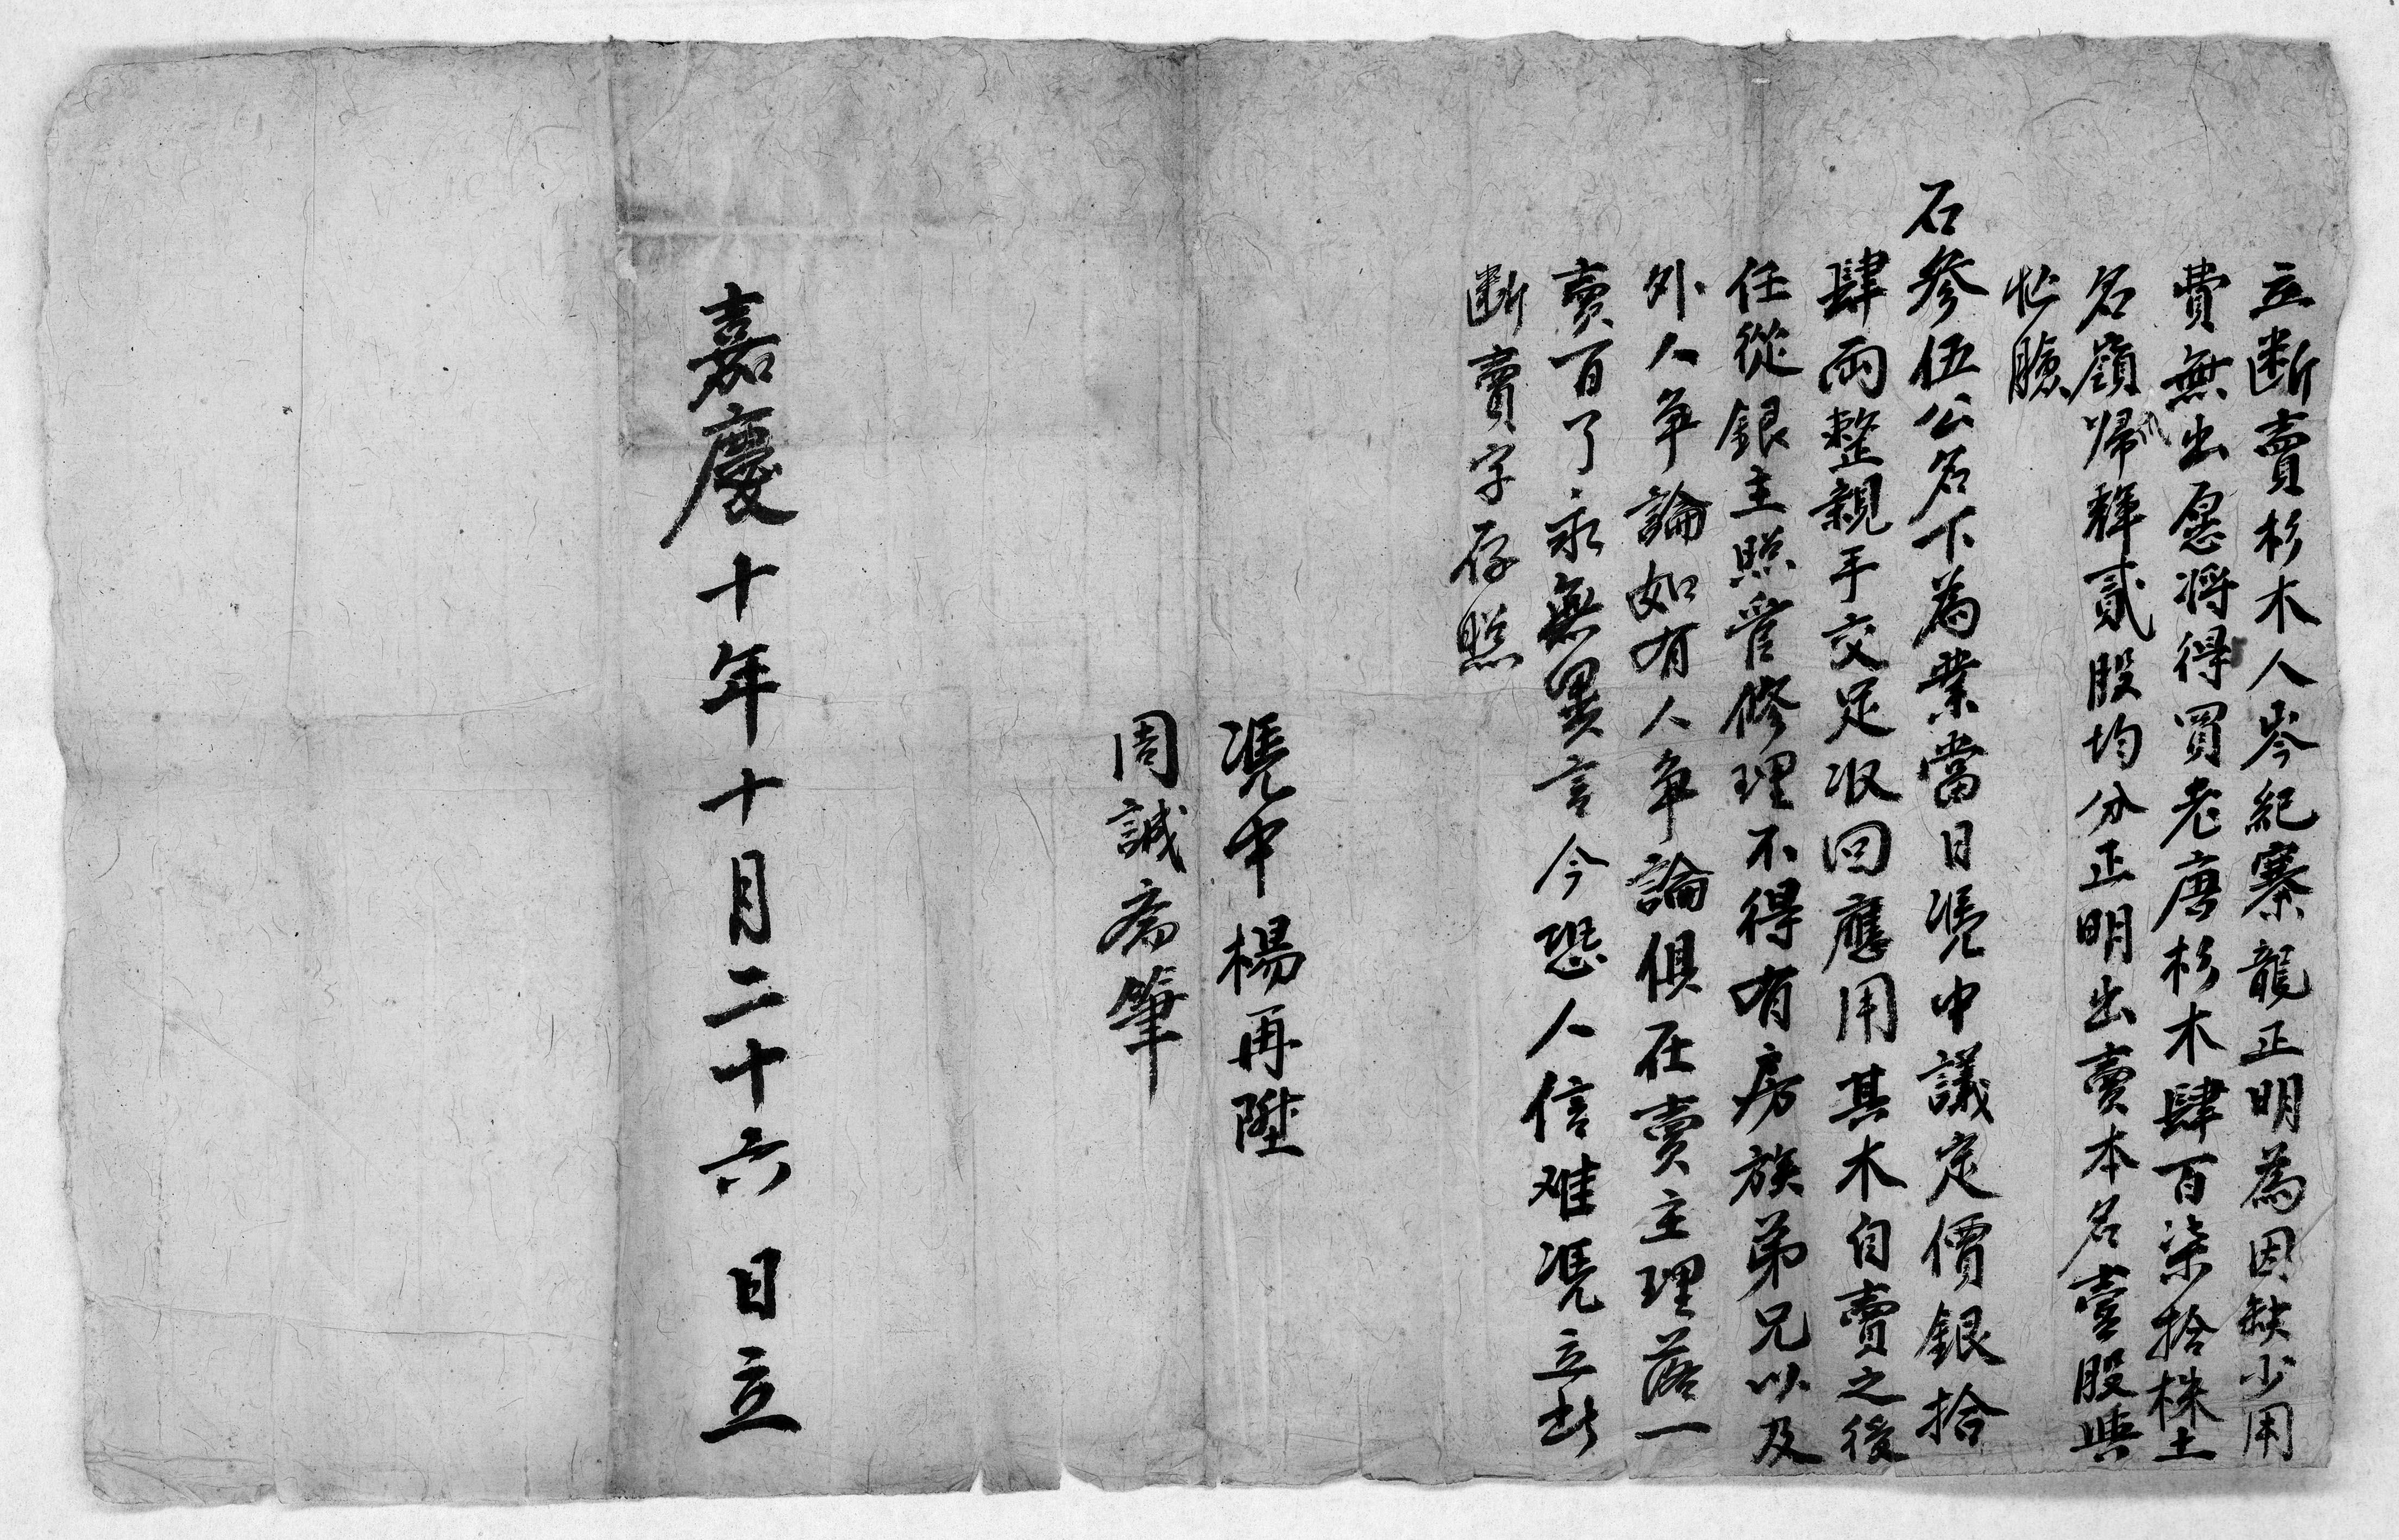 立断賣杉木人岑紀寨龍正明為因缺少用
費無出愿將得買老唐杉木肆百柒拾株土
名嶺帰輝貳股均分正明出賣本名壹股與
忙臉
石參伍公名下為業當日凴中議定價銀拾
肆両整親手交足收回應用其木自賣之後
任從銀主照管修理不得有房族弟兄以及
外人争論如有人争論俱在賣主理落一
賣百了永無異言今恐人信难凴立此
断賣字存照
凴中楊再陞
周誠齋筆
嘉慶十年十月二十六日立